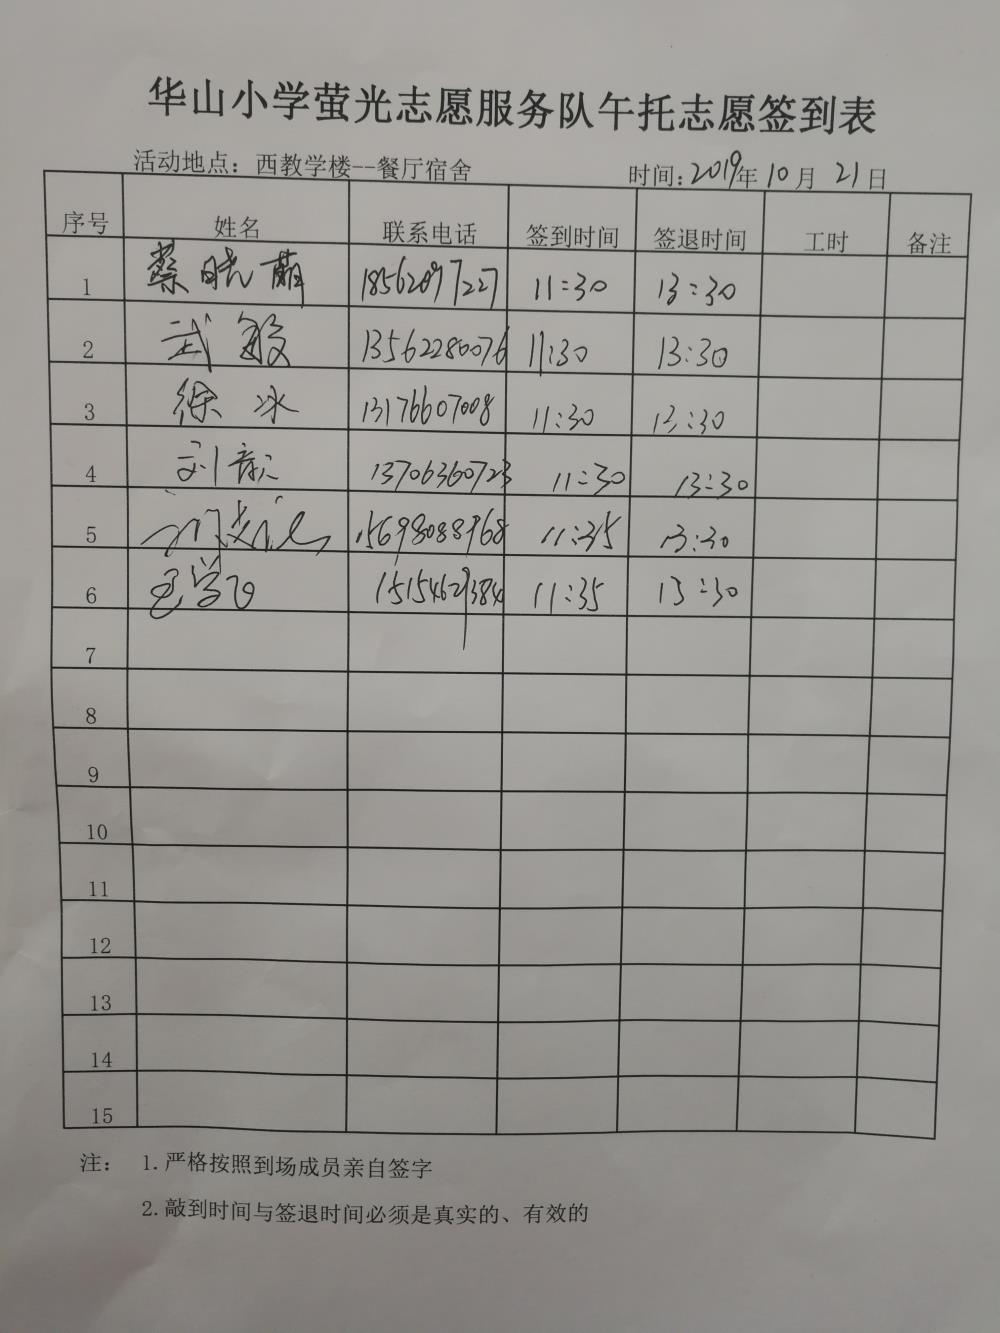 华山小学萤光志愿服务队午托志愿签到表
活动地点：西教学楼--餐厅宿舍 时间：2019年10月21日
序号 姓名 联系电话 签到时间 签退时间 工时 备注
1 蔡晓萌 18562097227 11:30 13:30
2 武敏 13562280076 11:30 13:30
3 徐冰 13176607008 11:30 13:30
4 刘 13706360723 11:30 13:30
5 15698088968 11:35 13:30
6 15154629384 11:35 13:30
7
8
9
10
11
12
13
14
15
注： 1.严格按照到场成员亲自签字
2.敲到时间与签退时间必须是真实的、有效的